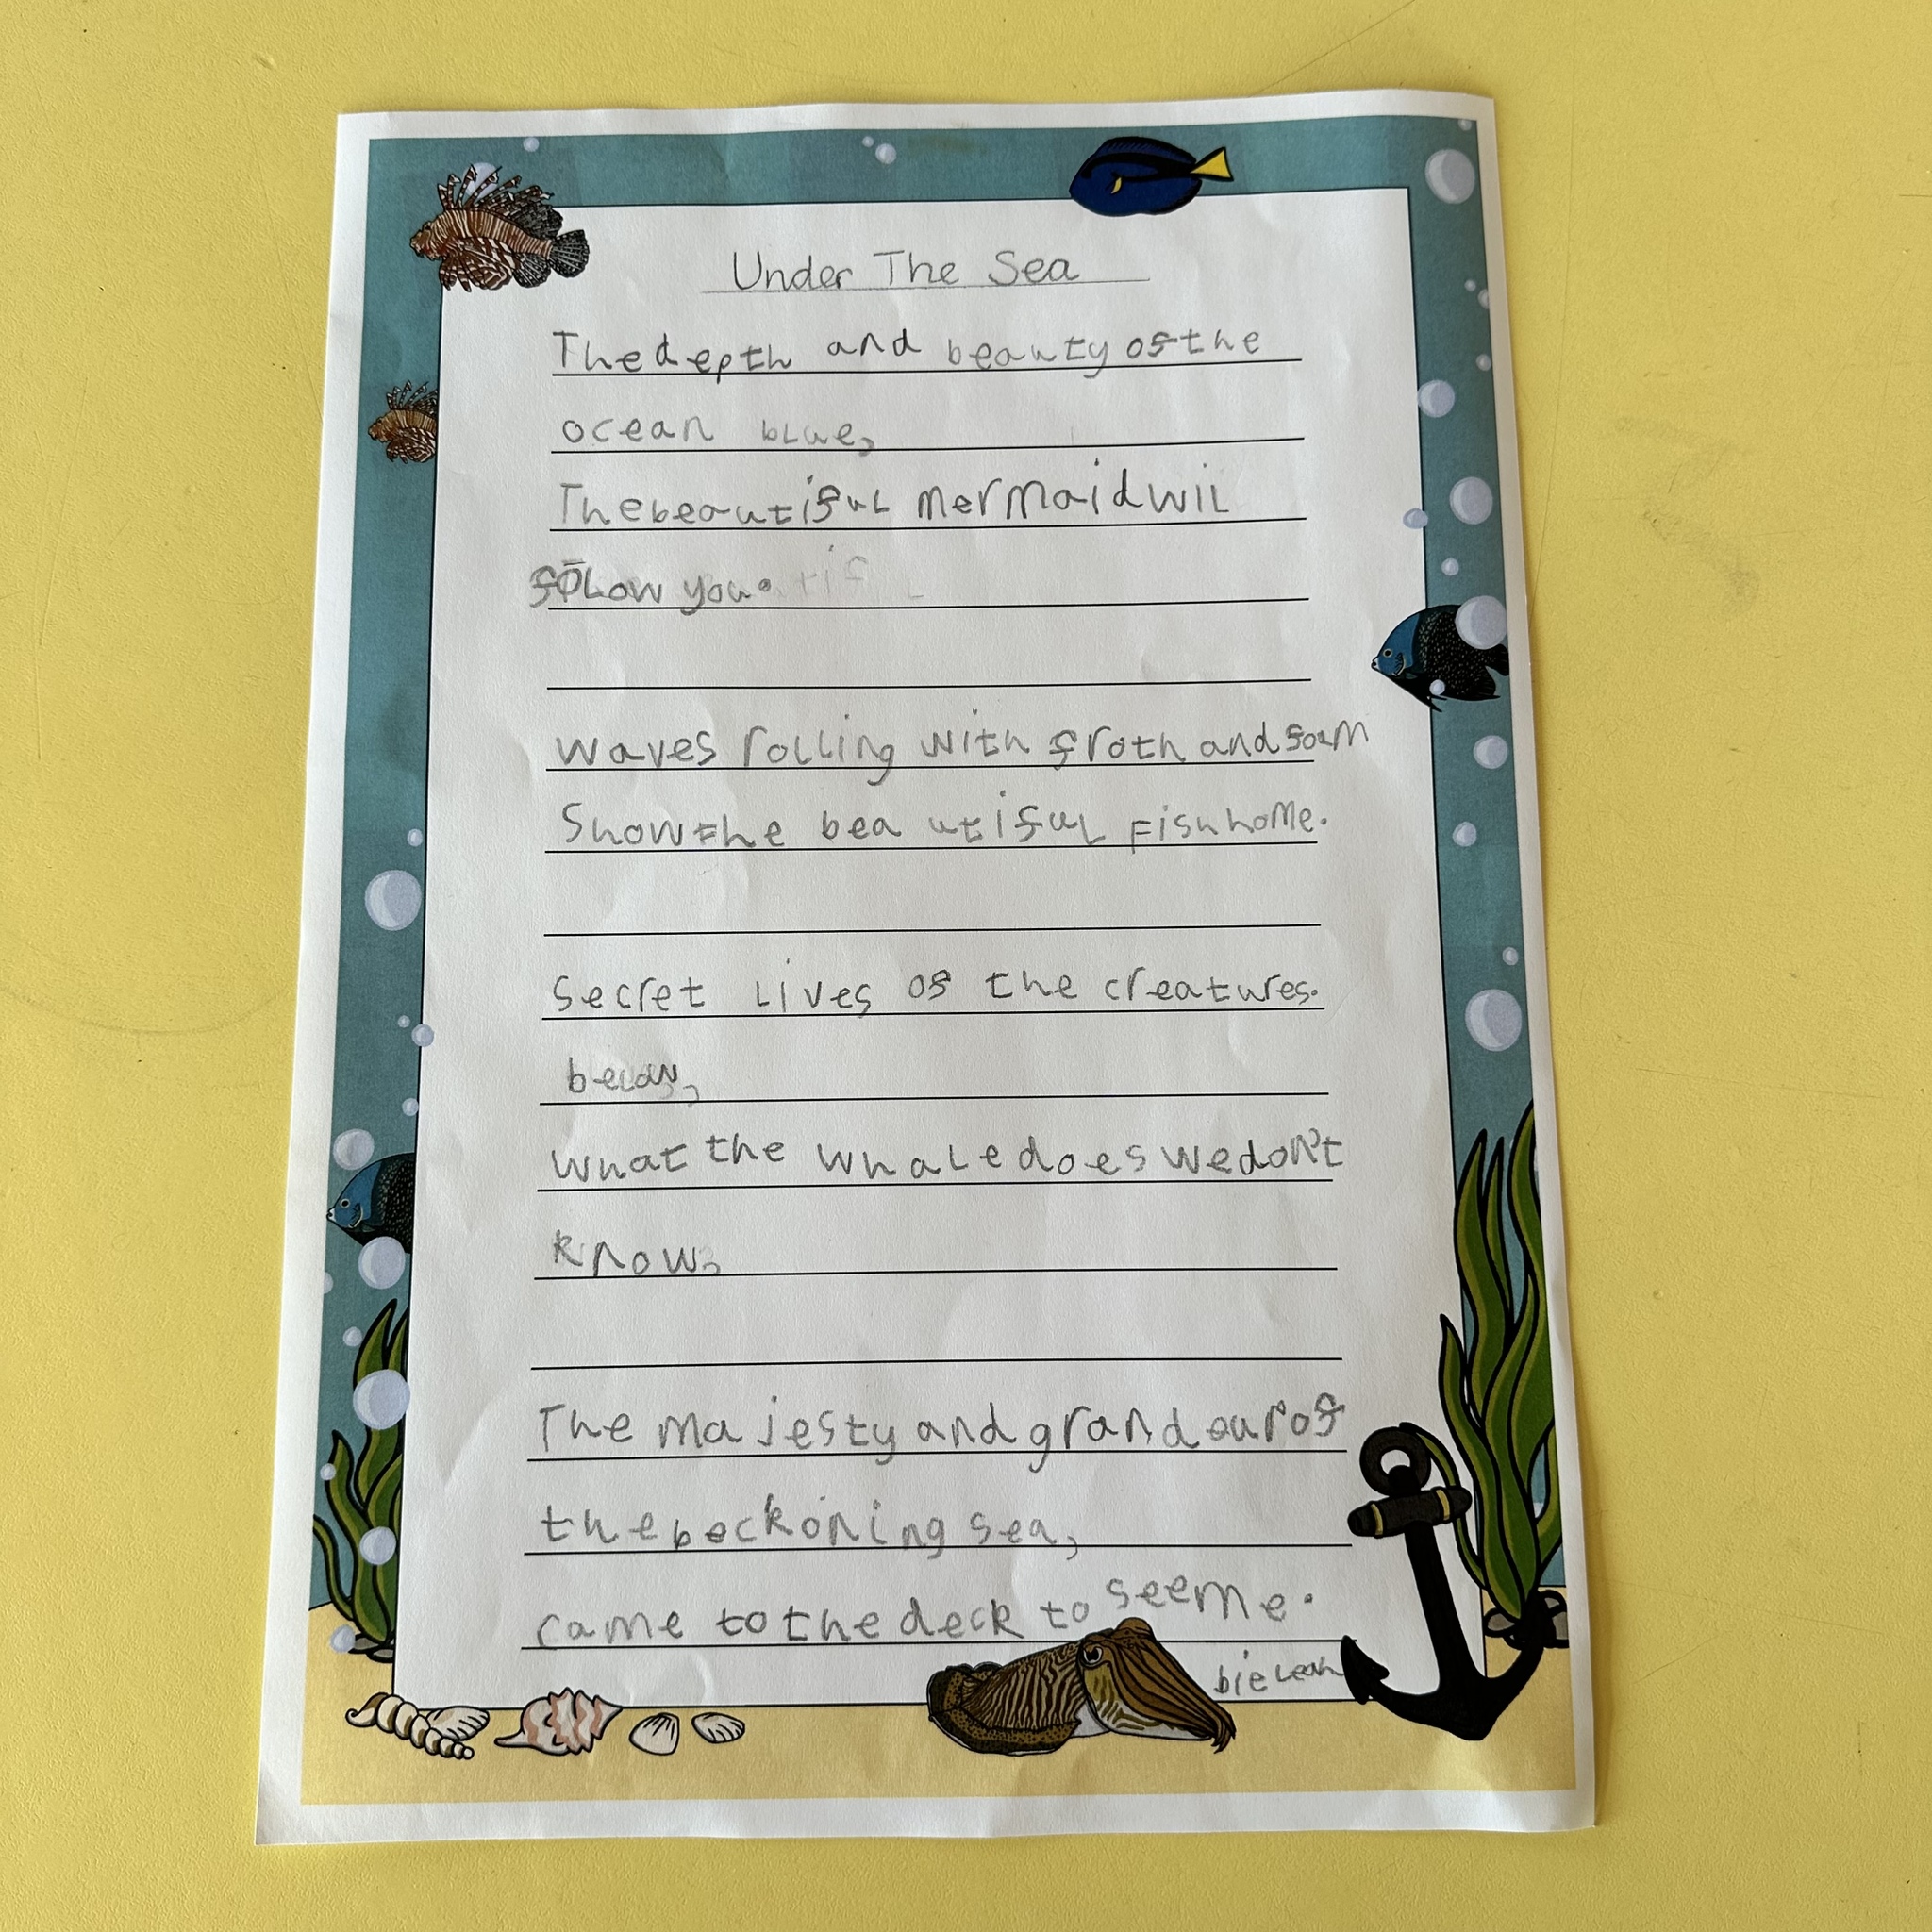 Under The Sea
The depth and beauty of the
ocean blue,
The beautiful mermaid wil
folow you.
waves rolling with froth and foam
Show the beautiful Fish home.
Secret lives of the creatures.
below,
what the whale does we don't
know,
The majesty and grandeur of
the beckoning sea,
came to the deck to see me.
bie Leah